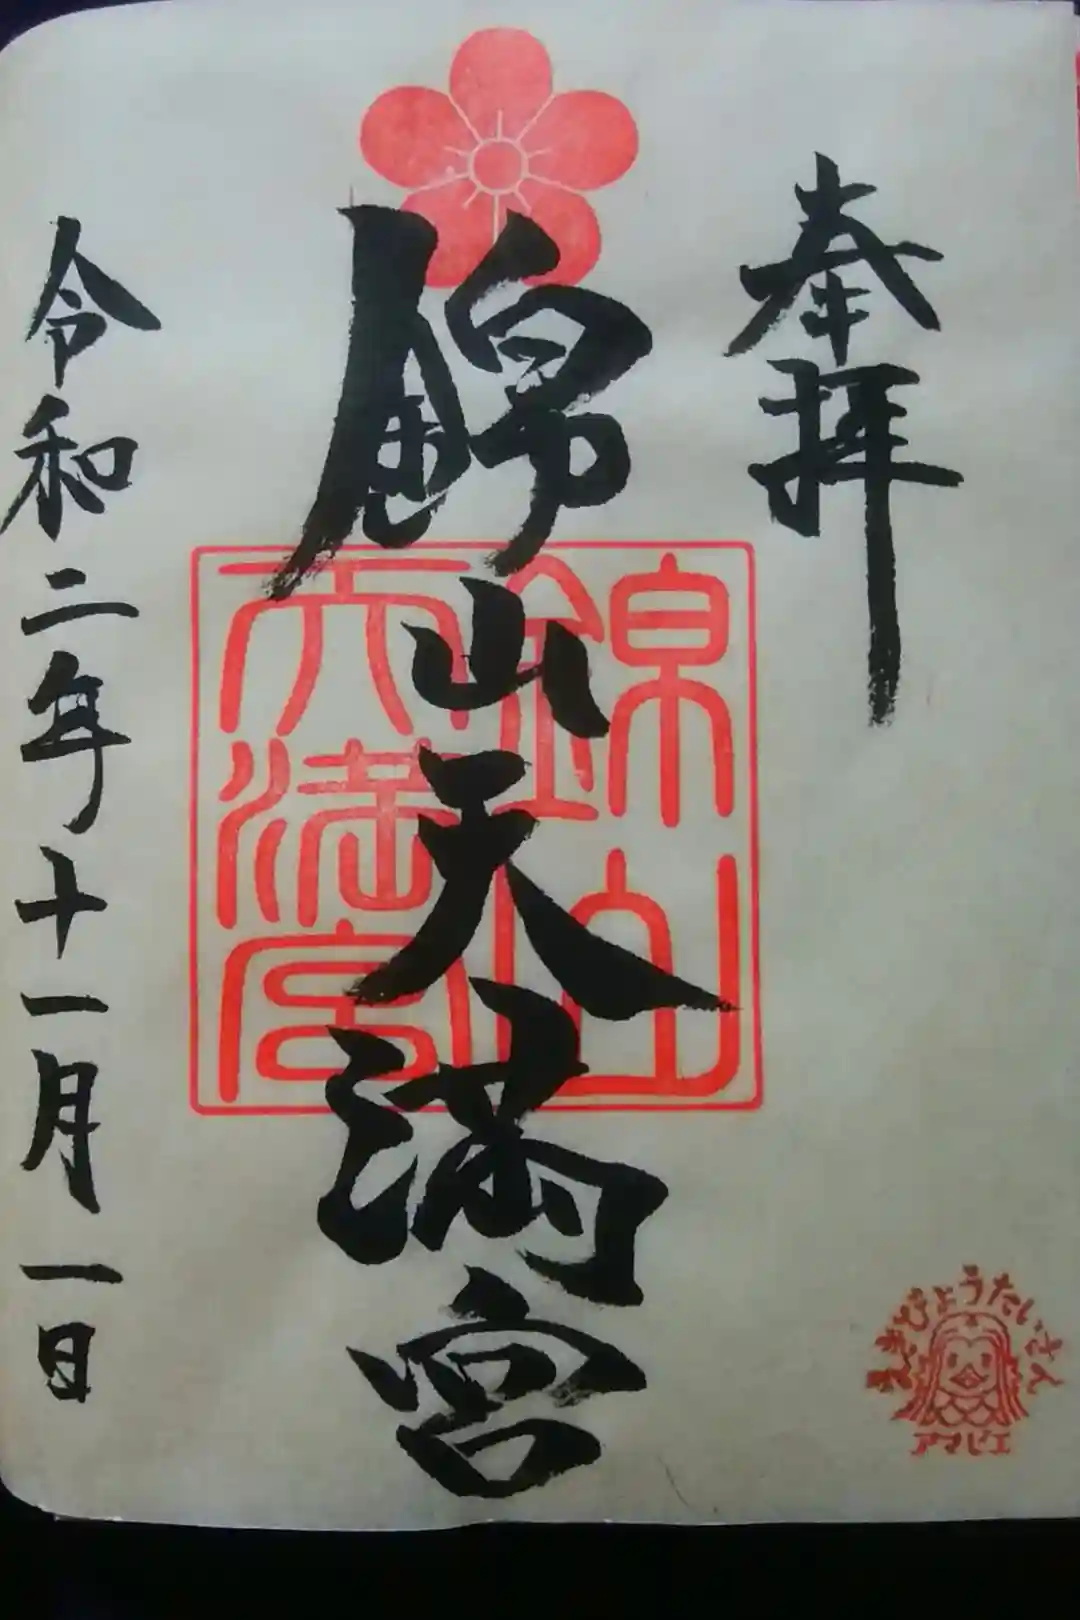 奉拝
錦山天満宮
錦山
天満宮
令和二年十一月一日
えきびょうたいさん
アマビエ